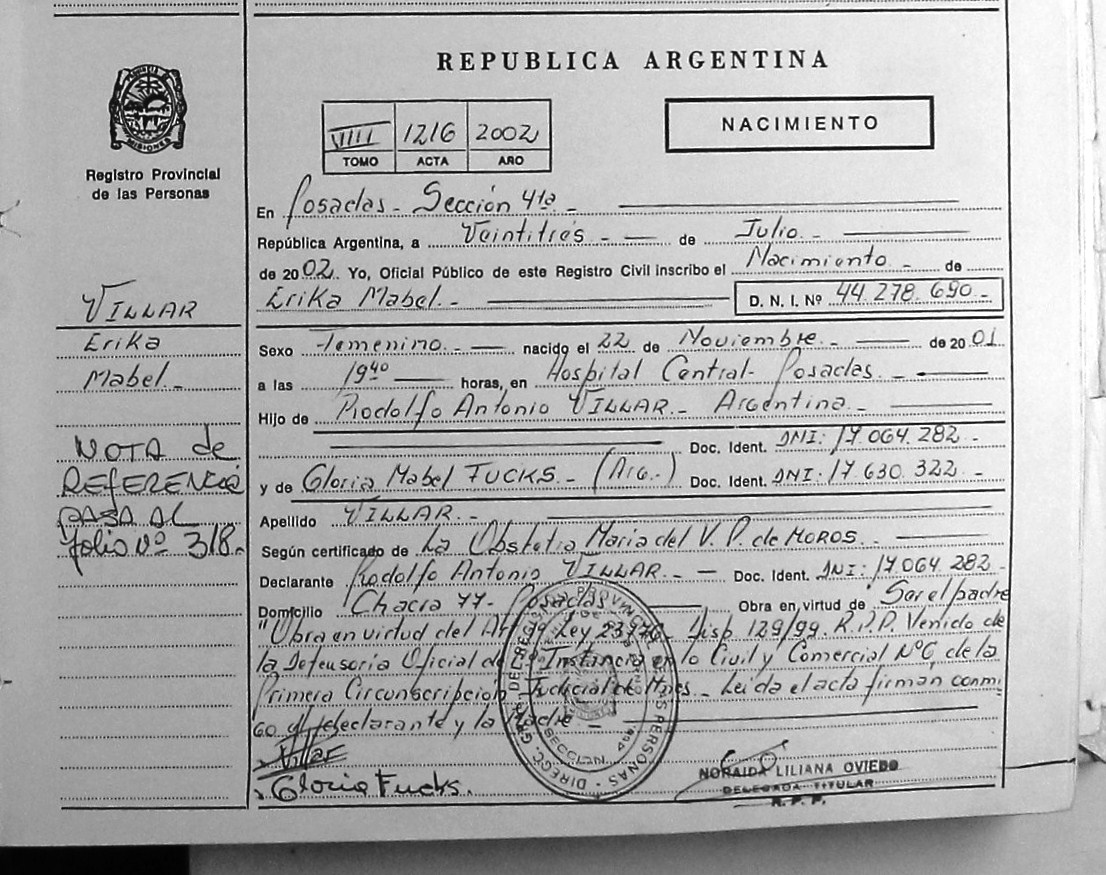 REPUBLICA ARGENTINA
MISIONES
Registro Provincial
de las Personas
VIIII 1216 2002
TOMO ACTA AÑO
NACIMIENTO
En Posadas - Sección 4ta -
República Argentina, a Veintitrés - de Julio. -
de 2002. Yo, Oficial Público de este Registro Civil inscribo el Nacimiento. - de
Erika Mabel. - D. N. I. Nº 44.278.690. -
VILLAR
Erika
Mabel. -
Sexo Femenino. - nacido el 22 de Noviembre. - de 2001
a las 19⁴⁰ horas, en Hospital Central - Posadas. -
Hijo de Rodolfo Antonio VILLAR. - Argentina. -
Doc. Ident. DNI: 17.064.282 -
y de Gloria Mabel FUCKS. - (Arg.) Doc. Ident. DNI: 17.630.322 -
NOTA de
REFERENCIA
PASA AL
folio Nº 318.
Apellido VILLAR. -
Según certificado de La Obstetra Maria del V. P. de MOROS. -
Declarante Rodolfo Antonio VILLAR. - Doc. Ident. DNI: 17.064.282 -
Domicilio Chacra 77 - Posadas Obra en virtud de Ser el padre
"Obra en virtud del Ley Disp. 129/99. R.P.P. Venido de
la Defensoría Oficial de Instancia en lo Civil y Comercial Nº 6, de la
Primera Circunscripción Judicial de Mnes. - Leida el acta firman conmi
go el declarante y la Madre -
Villar
Gloria Fucks.
DIRECC. GRAL. DEL REGISTRO PROVINCIAL DE LAS PERSONAS
SECCION
NORAIDA LILIANA OVIEDO
DELEGADA TITULAR
R. P. P.